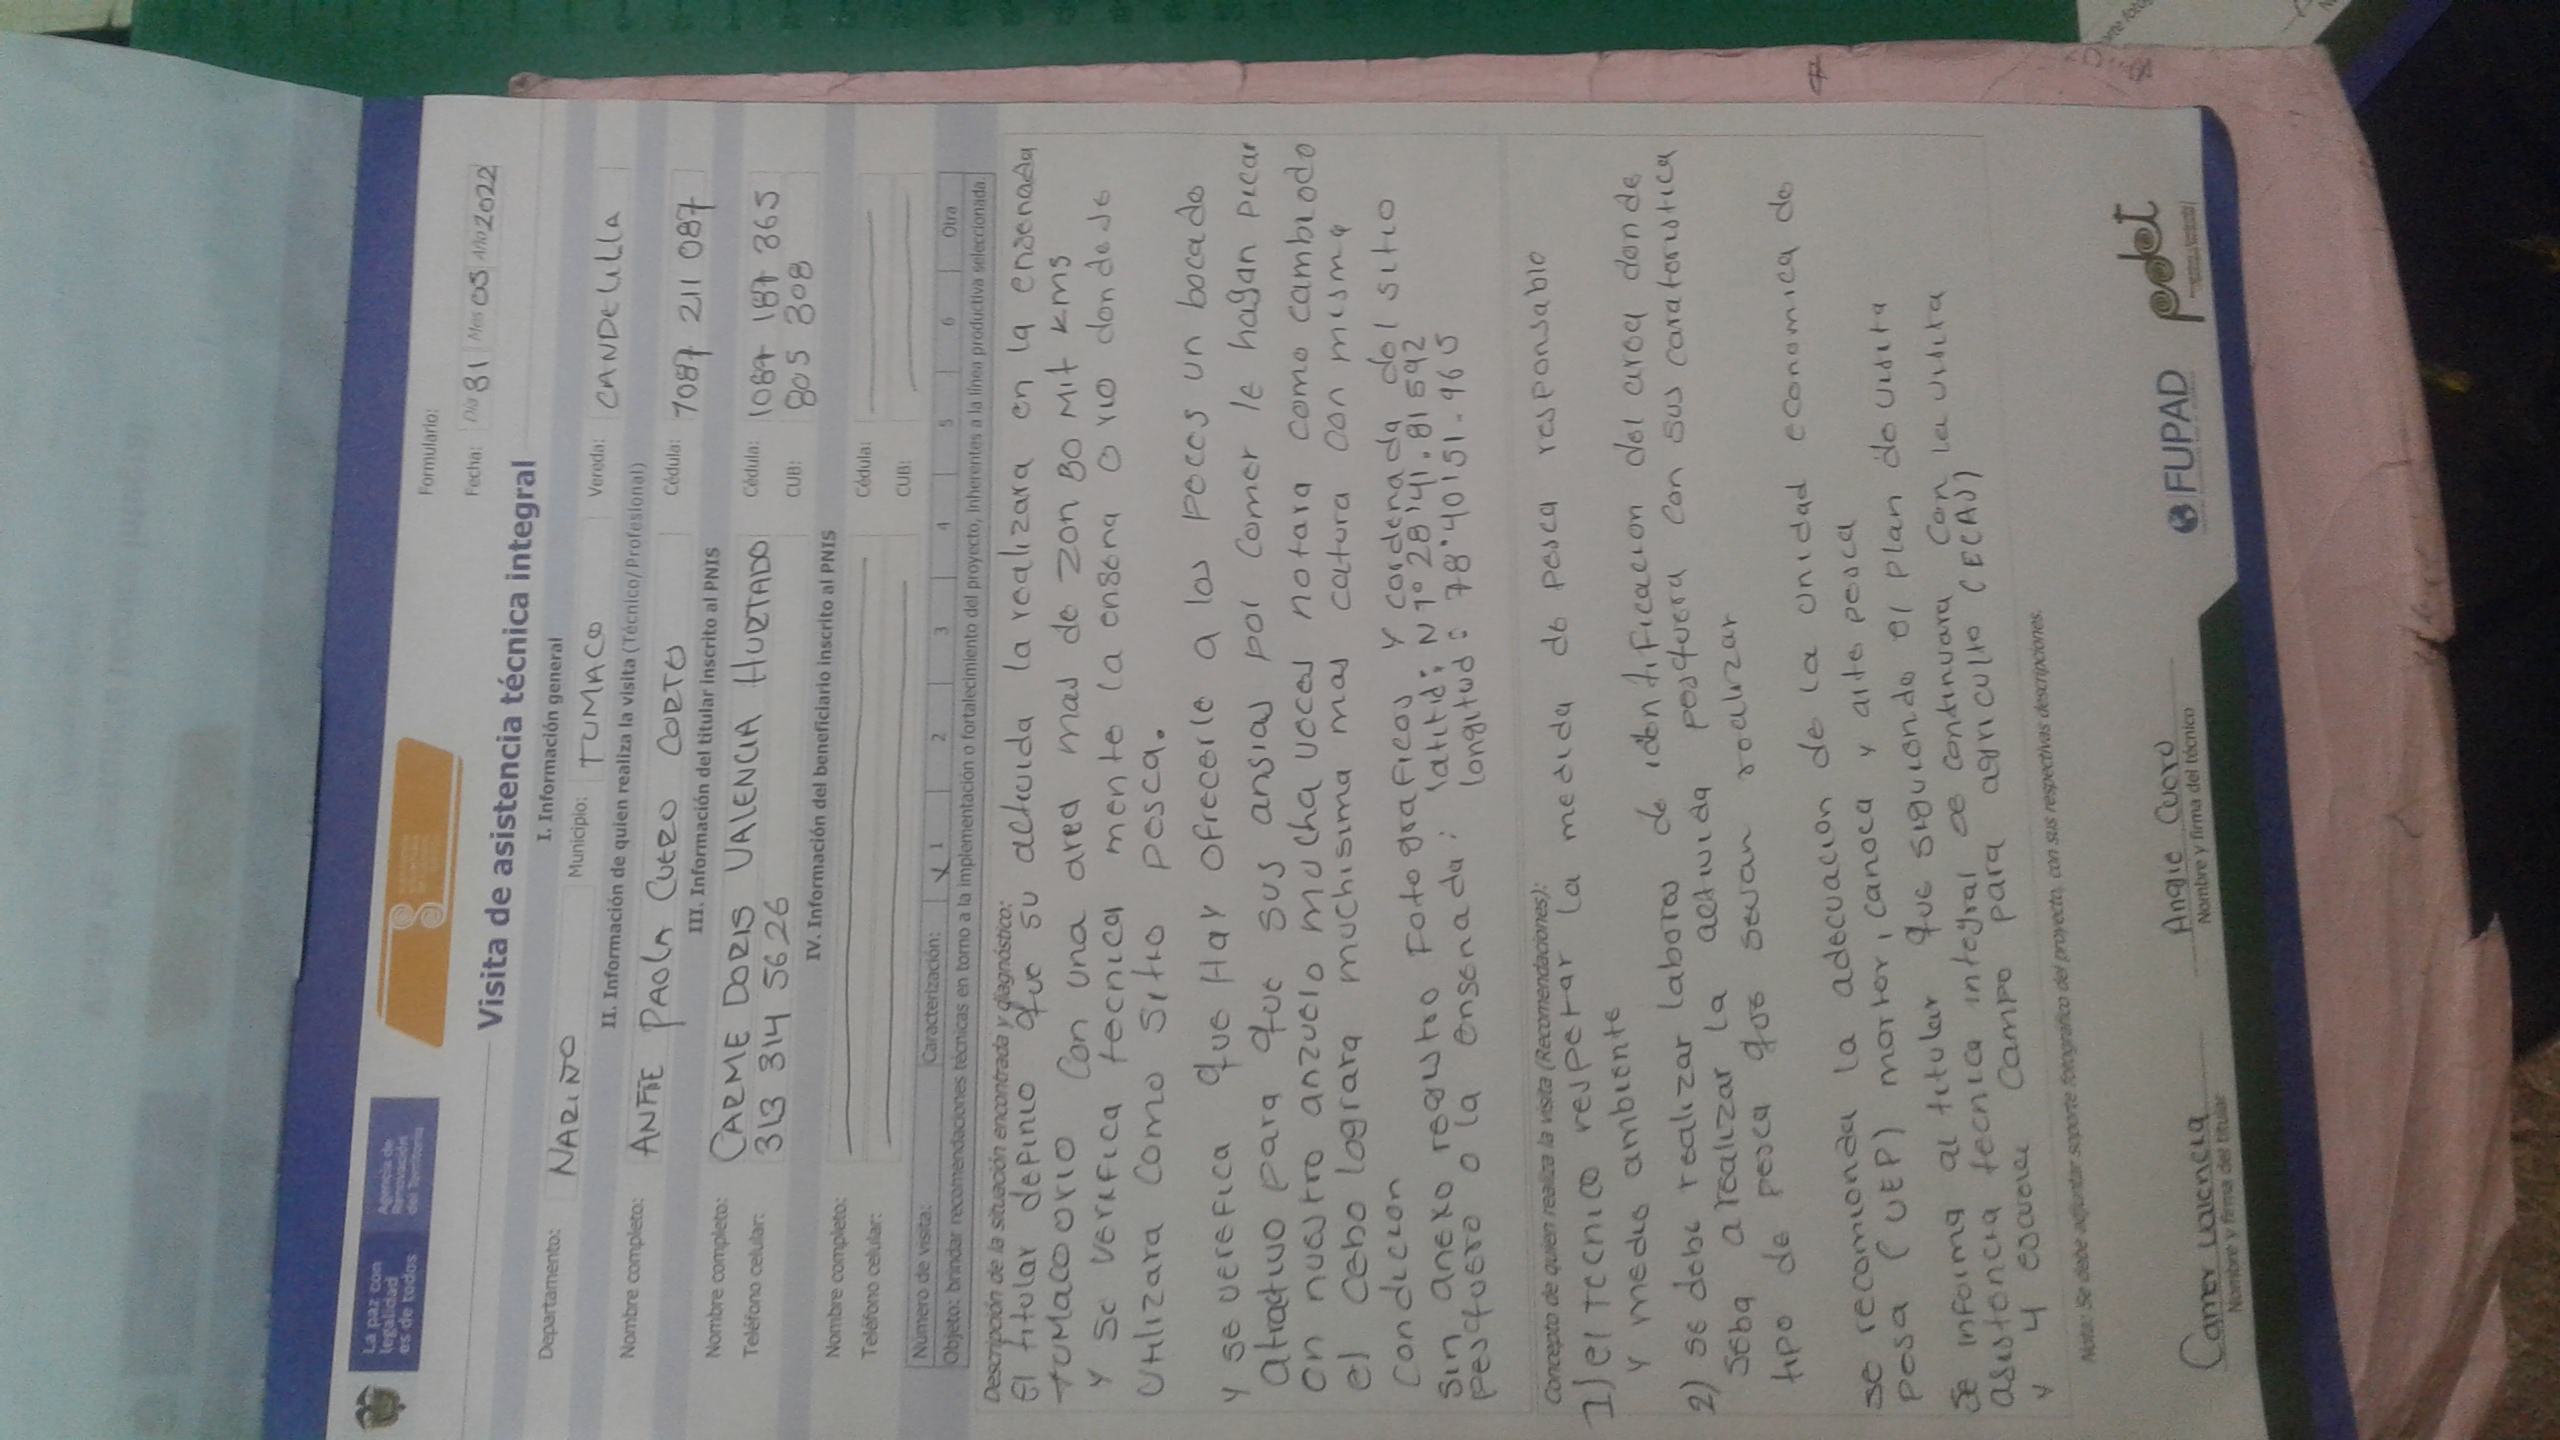 La paz con
legalidad
es de todos
Agencia de
Renovación
del Territorio
Formulario:
Fecha: Día 31 Mes 05 Año 2022
Visita de asistencia técnica integral
I. Información general
Departamento: NARIÑO Municipio: TUMACO Vereda: CANDELILLA
II. Información de quien realiza la visita (Técnico/Profesional)
Nombre completo: PAOLA CUERO CORTES Cédula: 1087 211 087
III. Información del titular inscrito al PNIS
Nombre completo: CARME DORIS VALENCIA HURTADO Cédula: 1087 187 365
Teléfono celular: 313 314 5626 CUB: 805 308
IV. Información del beneficiario inscrito al PNIS
Nombre completo: Cédula:
Teléfono celular: CUB:
Número de visita: Caracterización: X 1 2 3 4 5 6 Otra
Objeto: brindar recomendaciones técnicas en torno a la implementación o fortalecimiento del proyecto, inherentes a la línea productiva seleccionada.
Descripción de la situación encontrada y diagnóstico:
El titular definio que su actiuida la realizara en la ensenada
TUMACO ORIO con una area mas de zon 80 Mit kms
y se verifica tecnica mente la ensena o rio donde se
Utilizara como sitio pesca.
y se verefica que Hay ofrecerle a los peces un bocado
atractivo para que sus ansias por comer le hagan picar
en nuestro anzuelo mucha veces notara como cambiodo
el cebo lograra muchisima mas catura con misma
condicion
sin anexo registro Foto graficos y cordenada del sitio
pesquero o la ensenada: latitd: N 1° 28'41.81592
longitud: 78°40151.965
Concepto de quien realiza la visita (Recomendaciones):
1) el tecnico respetar la medida de pesca responsable
y medio ambiente
2) se debe realizar labores de identificacion del area donde
seba a realizar la actiuida pesquera con sus caraterística
tipo de pesca que sean realizar
se recomienda la adecuacion de la unidad economica de
pesa (UEP) mortor, canoca y arte pesca
Se informa al titular que siguiendo el plan de visita
asistencia tecnica integral se continuara con la visita
y 4 escuela campo para agriculto (ECAS)
Nota: Se debe adjuntar soporte fotográfico del proyecto, con sus respectivas descripciones.
Carmen Valencia
Nombre y firma del titular
Angie Cuero
Nombre y firma del técnico
FUPAD
pdet